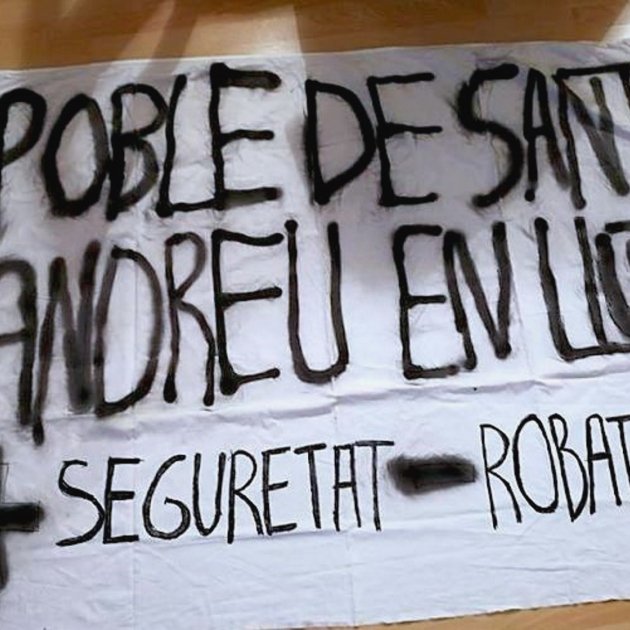 POBLE DE SANT
ANDREU EN
+ SEGURETAT -